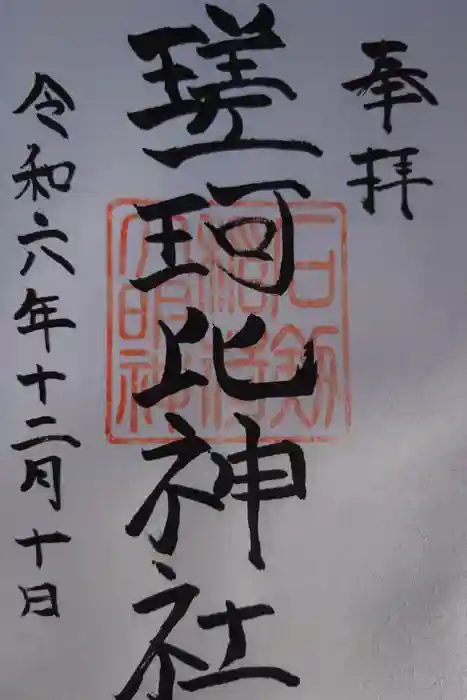 奉拝
瑳珂比神社
令和六年十二月十日